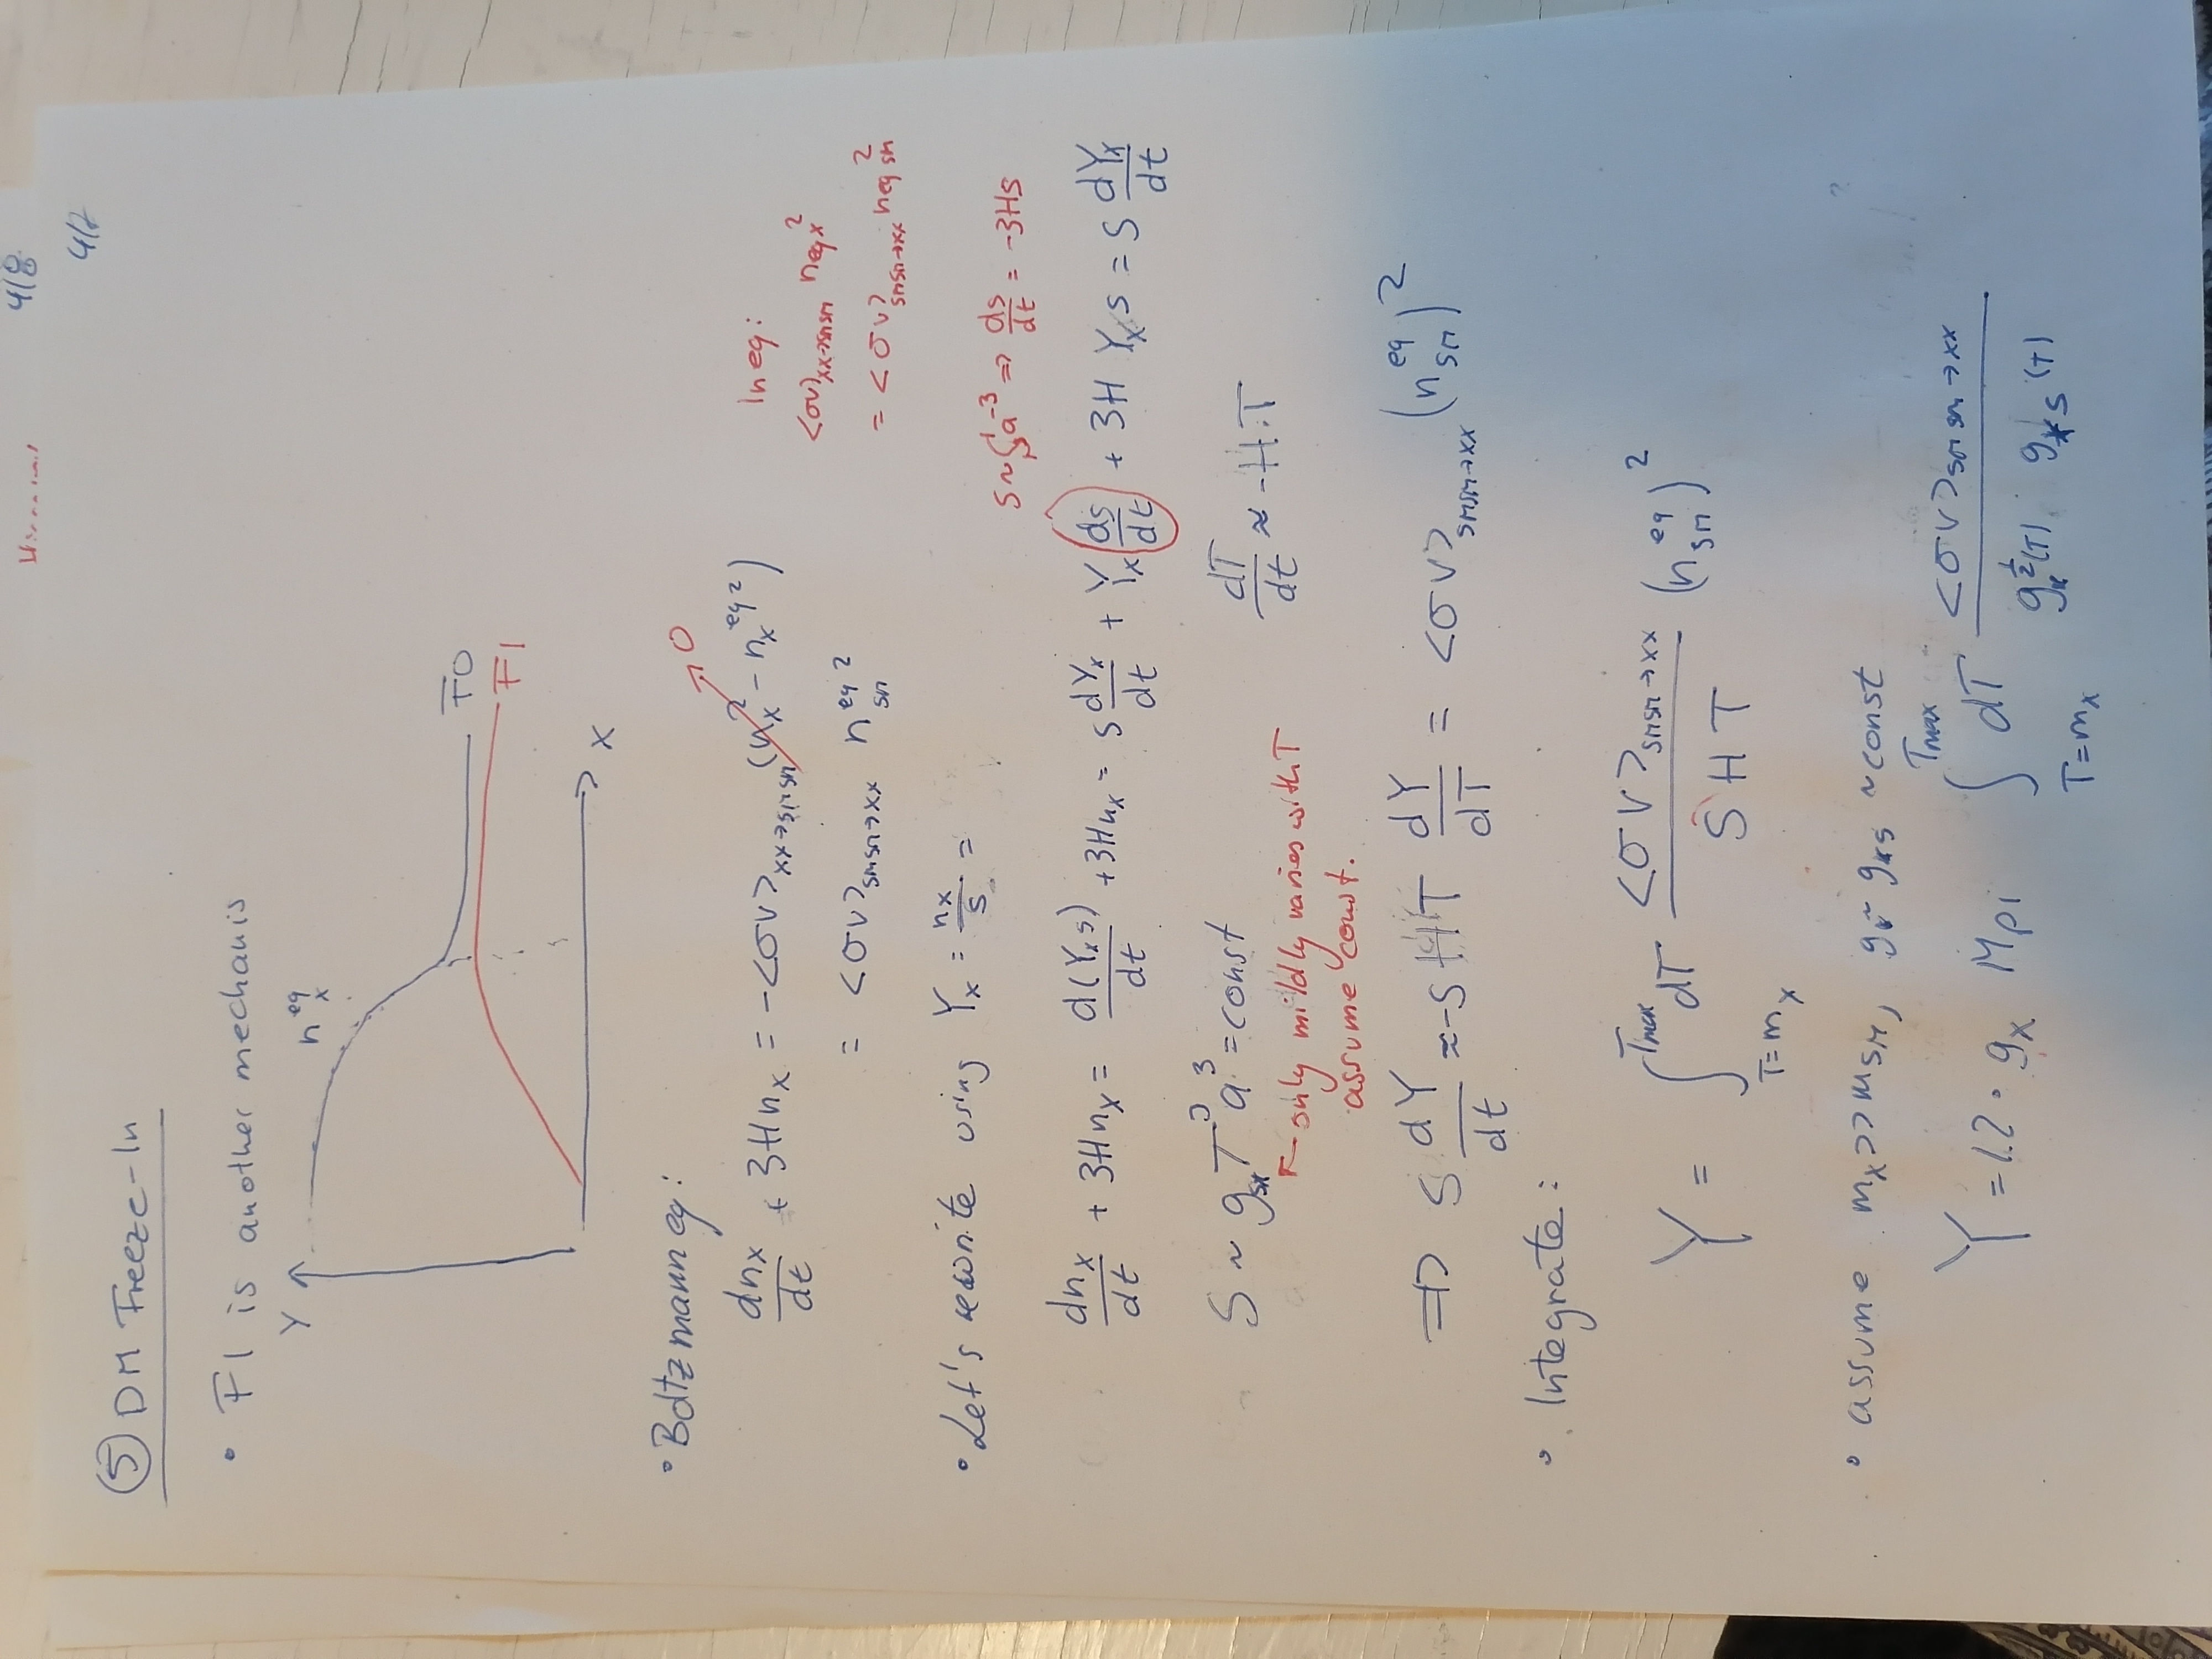 4/8
4/7
⑤ DM Freeze-In
• FI is another mechanis
Y
n_x^eq
FO
FI
x
• Boltzmann eq:
dn_x/dt + 3Hn_x = -<σv>_xx→smsm (n_x^2 - n_x^eq 2) →0
= <σv>_smsm→xx n_sm^eq 2
In eq:
<σv>_xx→smsm n_eq x^2
= <σv>_smsm→xx n_eq sm^2
• Let's rewrite using Y_x = n_x/s =
s ~ a^-3 ⇒ ds/dt = -3Hs
dn_x/dt + 3Hn_x = d(Y_x s)/dt + 3Hn_x = s dY_x/dt + Y_x ds/dt + 3H Y_x s = s dY_x/dt
S ~ g_s* T^3 a^3 = const
dT/dt ≈ -H·T
only mildly varies with T
assume const.
⇒ S dY/dt ≈ -S H T dY/dT = <σv>_smsm→xx (n_sm^eq)^2
• Integrate:
Y = ∫_{T=m_x}^{Tmax} dT <σv>_smsm→xx / S H T (n_sm^eq)^2
• assume m_x >> m_sm, g_* ~ g_*s ~ const
Y = 12 · g_x M_pl ∫_{T=m_x}^{Tmax} dT <σv>_smsm→xx / g_*^{1/2}(T) · g_*s(T)